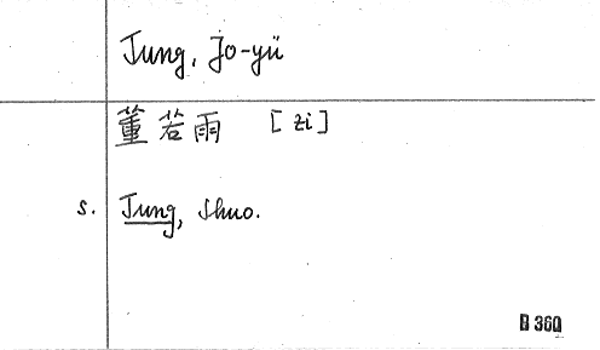 Tung, Jo-yü
董若雨 [zi]
s. Tung, Shuo.
B 360